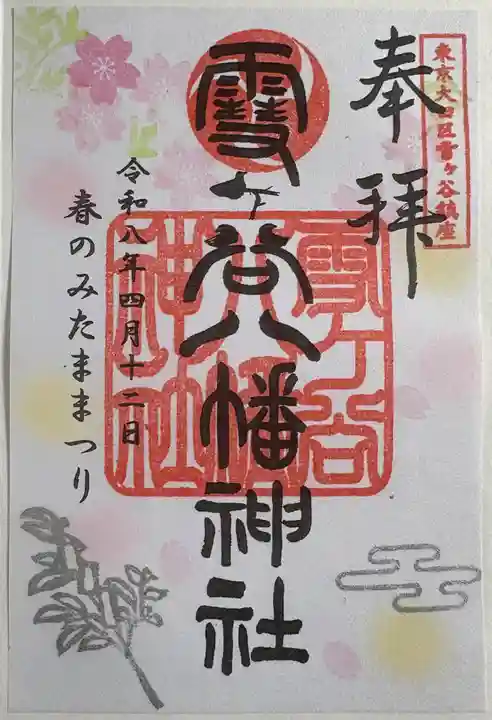 東京大田区雪ヶ谷鎮座
奉拝
雪ヶ谷八幡神社
雪ヶ谷
八幡
神社
令和八年四月十二日
春のみたままつり